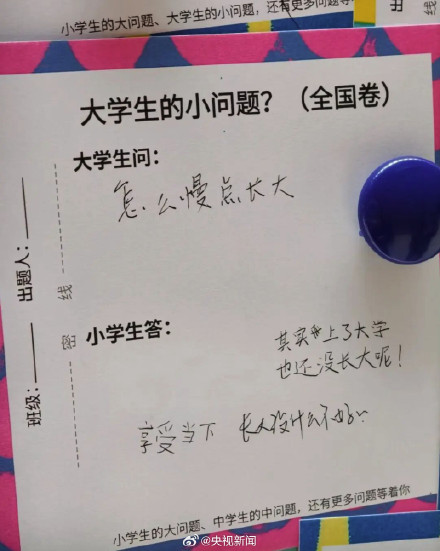 小学生的大问题、大学生的小问题，还有更多问题等
出
线
大学生的小问题？（全国卷）
大学生问：
怎么慢点长大
出题人：
线
密
班级：
小学生答：
其实我上了大学
也还没长大呢！
享受当下 长大没什么不好
小学生的大问题、中学生的中问题，还有更多问题等着你
@央视新闻